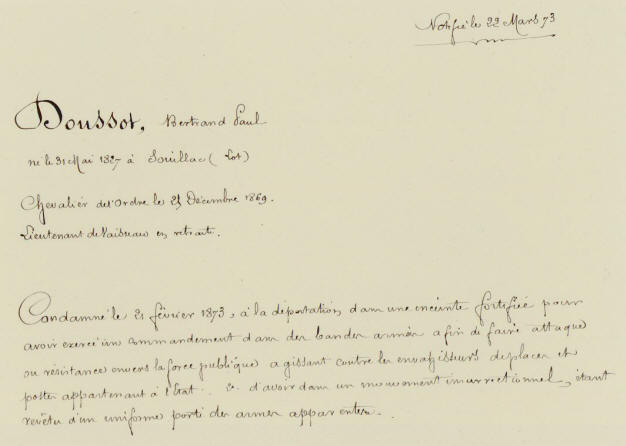 Notifié le 22 Mars 73
Doussot, Bertrand Paul
né le 31 Mai 1827 à Souillac (Lot)
Chevalier de l'Ordre le 21 Décembre 1869.
Lieutenant de Vaisseau en retraite.
Condamné le 21 février 1873, à la déportation dans une enceinte fortifiée pour
avoir exercé un commandement dans des bandes armées afin de faire attaque
ou résistance envers la force publique agissant contre les envahisseurs de places et
postes appartenant à l'État. &. d'avoir dans un mouvement insurrectionnel, étant
revêtu d'un uniforme porté des armes apparentes.